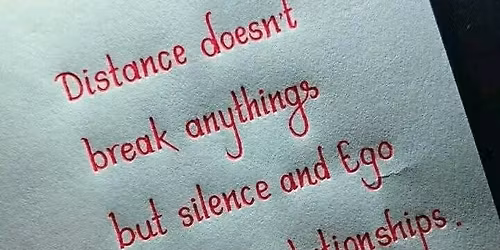 Distance doesn't
break anythings
but silence and Ego